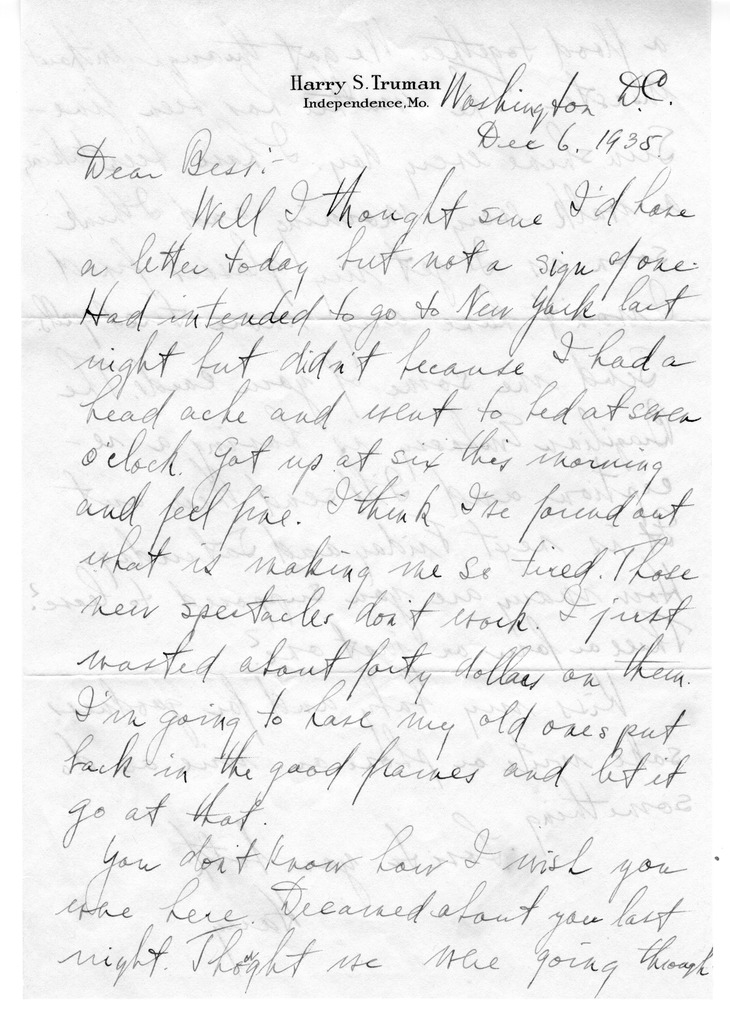 Harry S. Truman
Independence, Mo.
Washington D.C.
Dec 6, 1935
Dear Bess:-
Well I thought sure I'd have
a letter today but not a sign of one.
Had intended to go to New York last
night but didn't because I had a
head ache and went to bed at seven
o'clock. Got up at six this morning
and feel fine. I think I've found out
what is making me so tired. Those
new spectacles don't work. I just
wasted about forty dollars on them.
I'm going to have my old ones put
back in the good frames and let it
go at that.
You don't know how I wish you
were here. Dreamed about you last
night. Thought we were going through